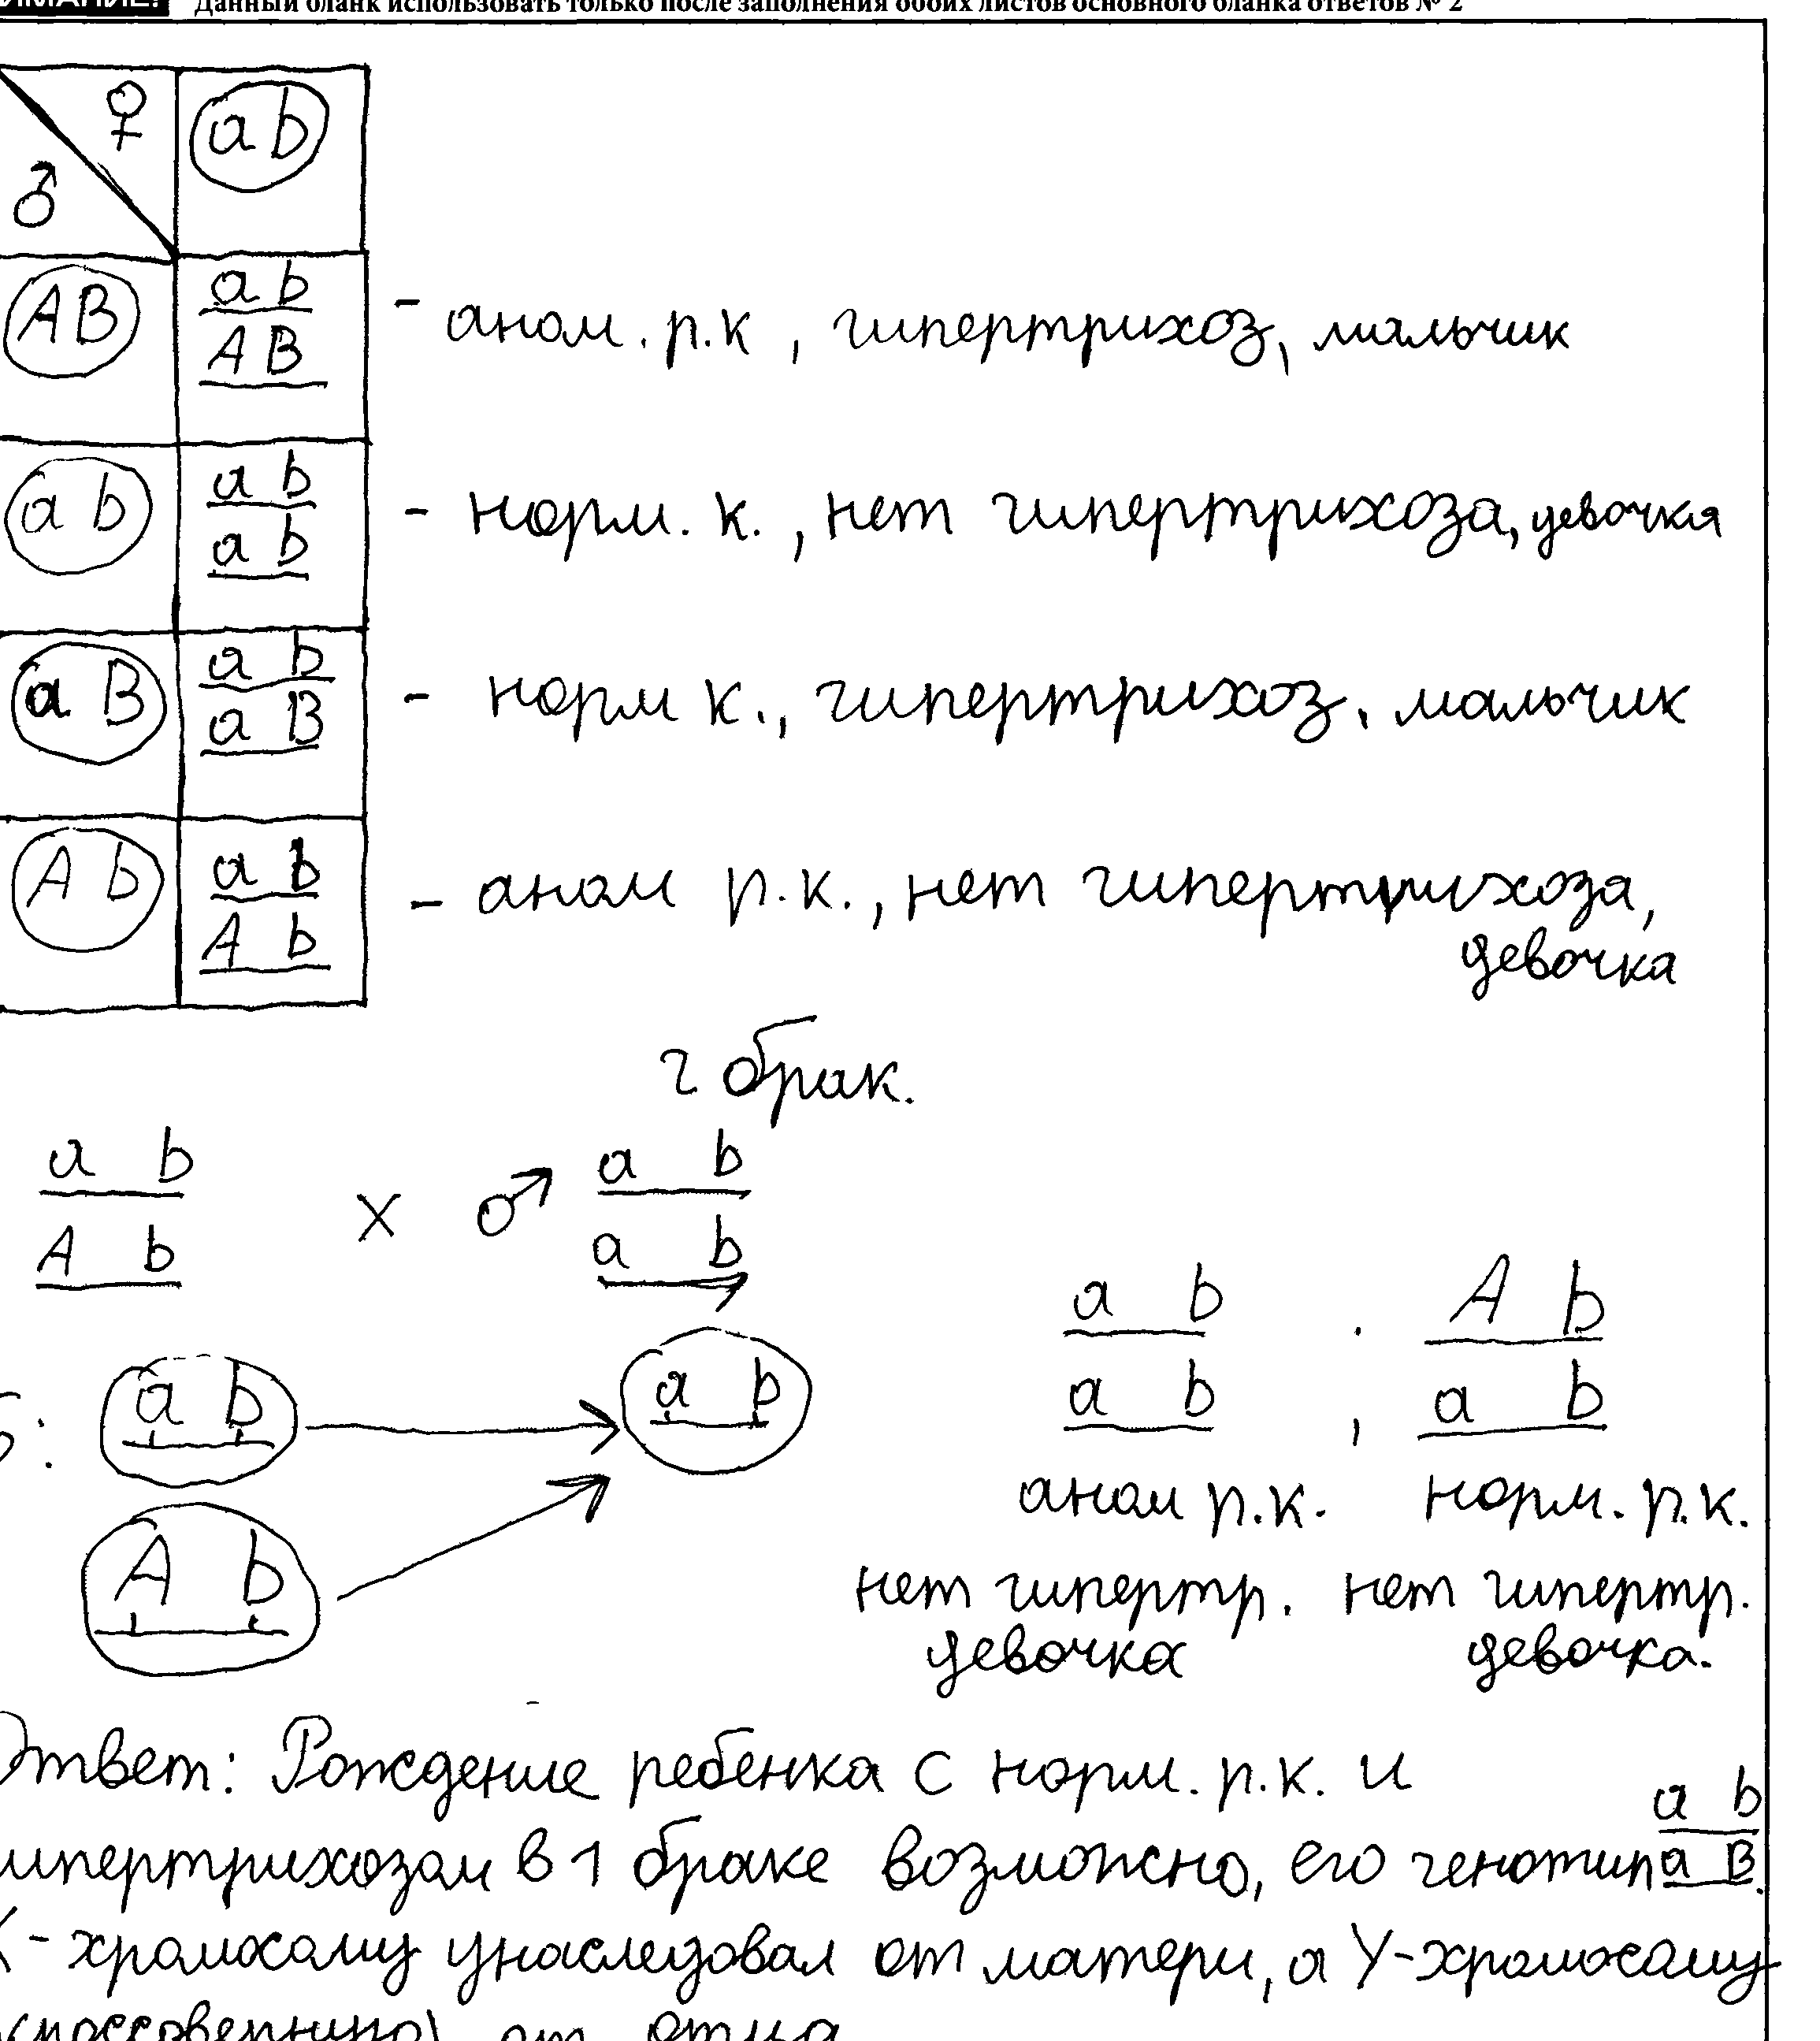 Данный бланк использовать только после заполнения обоих листов основного бланка ответов № 2
♀ ab
♂
AB ab
AB - аном. р.к, гипертрихоз, мальчик
ab ab
ab - норм. к., нет гипертрихоза, девочка
aB ab
aB - норм к., гипертрихоз, мальчик
Ab ab
Ab - аном р.к., нет гипертрихоза,
девочка
2 брак.
a b a b
x ♂
A b a b
a b A b
a b a b , a b a b
аном р.к. норм. р.к.
A b
нет гипертр. нет гипертр.
девочка девочка.
Ответ: Рождение ребенка с норм. р.к. и
a b
в 1 браке возможно, его генотип a B.
хромосому унаследовал от матери, а Y-хромосому
от отца